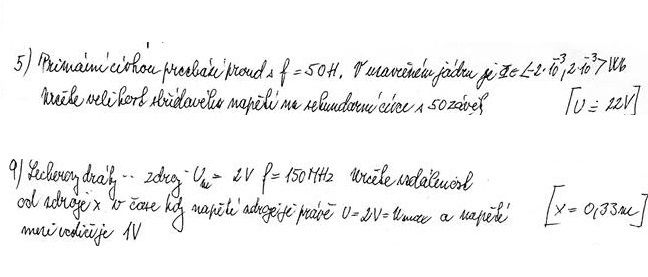 5) Primární cívkou prochází proud s f = 50H. V uzavřeném jádru je Φ∈<-2·10⁻³, 2·10⁻³> Wb
Určete velikost střídavého napětí na sekundární cívce s 50 závity [U ≐ 22V]
9) Lecherovy dráty -- zdroj Um = 2V f = 150MHz Určete vzdálenost
od zdroje x v čase kdy napětí zdroje je právě U = 2V = Umax a napětí [x = 0,33m]
mezi vodiči je 1V